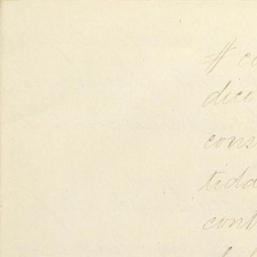 # co
dici
cons
tida
cont